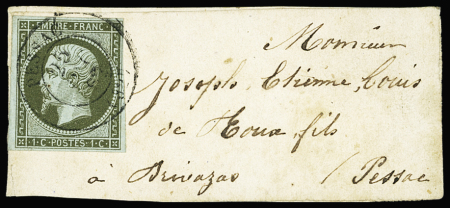 EMPIRE FRANC.
1·C·POSTES·1·C
Monsieur
Joseph Etienne, Louis
de Roux, fils
à Brivazac / Pessac